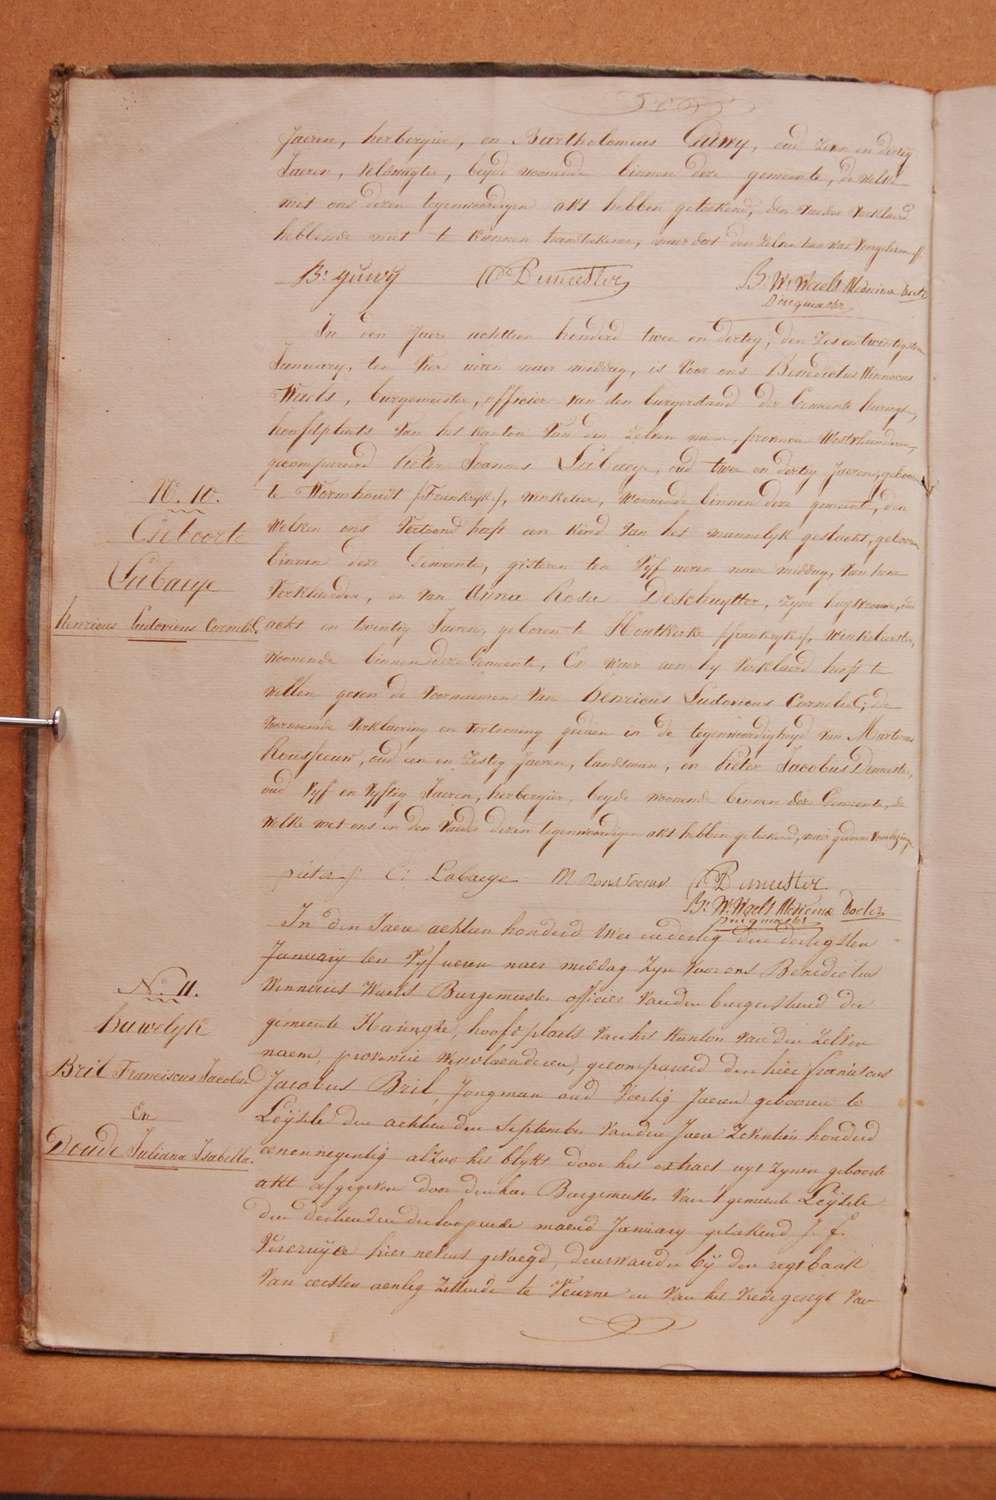 Jaeren, herbergier, en Bartholomeus Guwy, oud zeven en dertig
Jaeren, veldwagter, beyde woonende binnen deze gemeente, de welke
met ons dezen tegenwoordigen akt hebben geteekend, den vader verklaerd
hebbende niet te konnen handteekenen, naer dat den zelven hun was voorgelezen
B: guwy P Demeester B. W. Waels Medicinæ Doctor
Burgmeester
In den Jaere achttien honderd twee en dertig, den zes en twintigsten
January, ten vier uren naer middag, is voor ons Benedictus Winnocus
Waels, burgemeester, officier van den burgerstand der Gemeente haringe,
hoofdplaets van het kanton van den zelven naem, provincie Westvlaenderen,
gecompareerd Pieter Joannes Labaeye, oud twee en dertig Jaeren, geboren
te Wormhoudt (Frankryke), woonende binnen deze gemeente, den
welken ons vertoond heeft een kind van het mannelyk geslacht, geboren
binnen deze Gemeente, gisteren ten vyf uren naer middag, van hem
verklaerder, en van Anna Rosa Deschuytter, zyne huysvrouwe, oud
acht en twintig Jaeren, geboren te Houtkerke (frankryke), winkelierster,
woonende binnen deze Gemeente, En waer aen hy verklaerd heeft te
willen geven de voornaemen van henricus Ludovicus Cornelius; De
voornoemde verklaering en vertooning gedaen in de tegenwoordigheyd van Martinus
Rousseeuw, oud een en zestig Jaeren, landsman, en Pieter Jacobus Demeester,
oud vyf en vyftig Jaeren, herbergier, beyde woonende binnen deze Gemeente, de
welke met ons en den vader dezen tegenwoordigen akt hebben geteekend, naer gedaene voorlezing.
pieter j: C: Labaeye M Rousseeuw P Demeester
B. W. Waels Medicinæ Doctor
Burgmeester
In den Jaere achttien honderd twee en dertig den dertigsten
January ten vyf ueren naer middag zyn voor ons Benedictus
Winnocus Waels Burgemeester officier van den burgerstand der
gemeente Haringhe, hoofdplaets van het kanton van den zelven
naem, provincie Westvlaenderen, gecompareerd den heer franciscus
Jacobus Bril, Jongman oud veertig Jaeren gebooren te
Leysele den achtien den September van den Jaere zeventien honderd
een en negentig alzoo het blykt door het extract uyt zynen geboorte
akt afgegeven door den heer Burgemeester van 't gemeente Leysele
den dertienden der loopende maend January geteekend J. f.
Vercruyce hier nevens gevoegd, deurwaerder bij den regtbank
van eersten aenleg zittende te Veurne en van het vredegeregt van
N.º 10.
Geboorte
Labaeye
henricus Ludovicus Cornelius
N.º 11.
huwelyk
Bril Franciscus Jacobus
En
Doude Juliana Isabella.